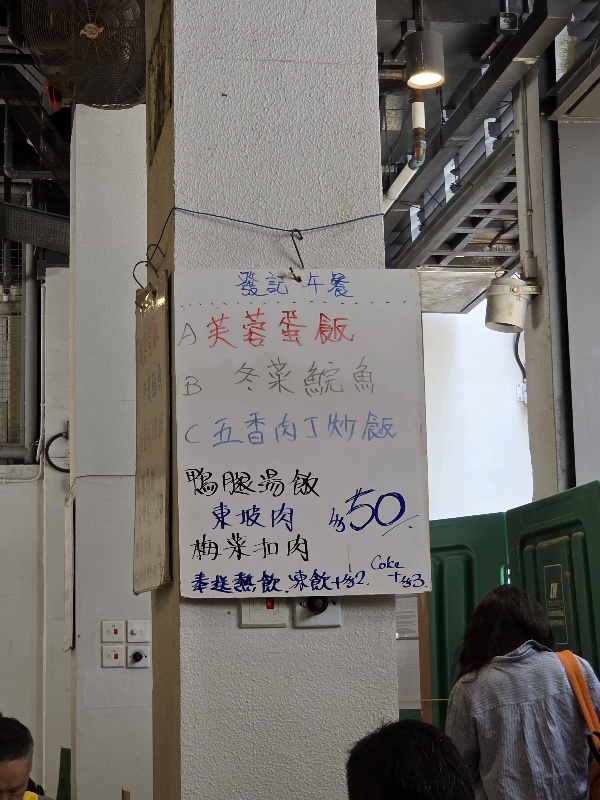 發記 午餐
A 芙蓉蛋飯
B 冬菜鯇魚
C 五香肉丁炒飯
鴨腿湯飯
東坡肉 $50
梅菜扣肉
奉送熱飲.凍飲+$2. Coke +$3